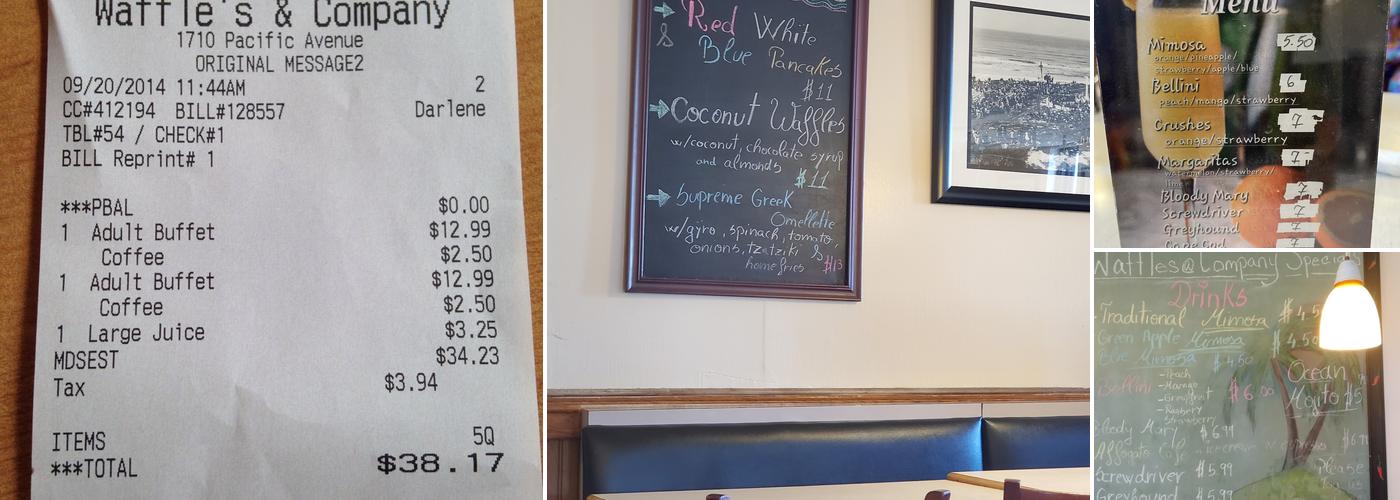 Waffle's & Company
1710 Pacific Avenue
ORIGINAL MESSAGE2
09/20/2014 11:44AM 2
CC#412194 BILL#128557 Darlene
TBL#54 / CHECK#1
BILL Reprint# 1
***PBAL $0.00
1 Adult Buffet $12.99
Coffee $2.50
1 Adult Buffet $12.99
Coffee $2.50
1 Large Juice $3.25
MDSEST $34.23
Tax $3.94
ITEMS 5Q
***TOTAL $38.17
Red White
& Blue Pancakes
$11
Coconut Waffles
w/coconut, chocolate syrup
and almonds
$11
Supreme Greek
Omellette
w/gyro, spinach, tomato,
onions, tzatziki &
homefries $13
Menu
Mimosa 5.50
orange/pineapple/
strawberry/apple/blue
Bellini 6
peach/mango/strawberry
Crushes 7
orange/strawberry
Margaritas 7
watermelon/strawberry/
lime
Bloody Mary 7
Screwdriver 7
Greyhound 7
Cape Cod 7
Waffles @ Company Special
Drinks
Traditional Mimosa $4.5
Green Apple Mimosa $4.50
Blue Mimosa $4.50
-Peach
Bellini -Mango $6.00
-Grapefruit
-Raspberry
Strawberry
Ocean
Mojito $5
Bloody Mary $6.99
Affogato Cafe
Screwdriver $5.99
Please
Greyhound $5.99